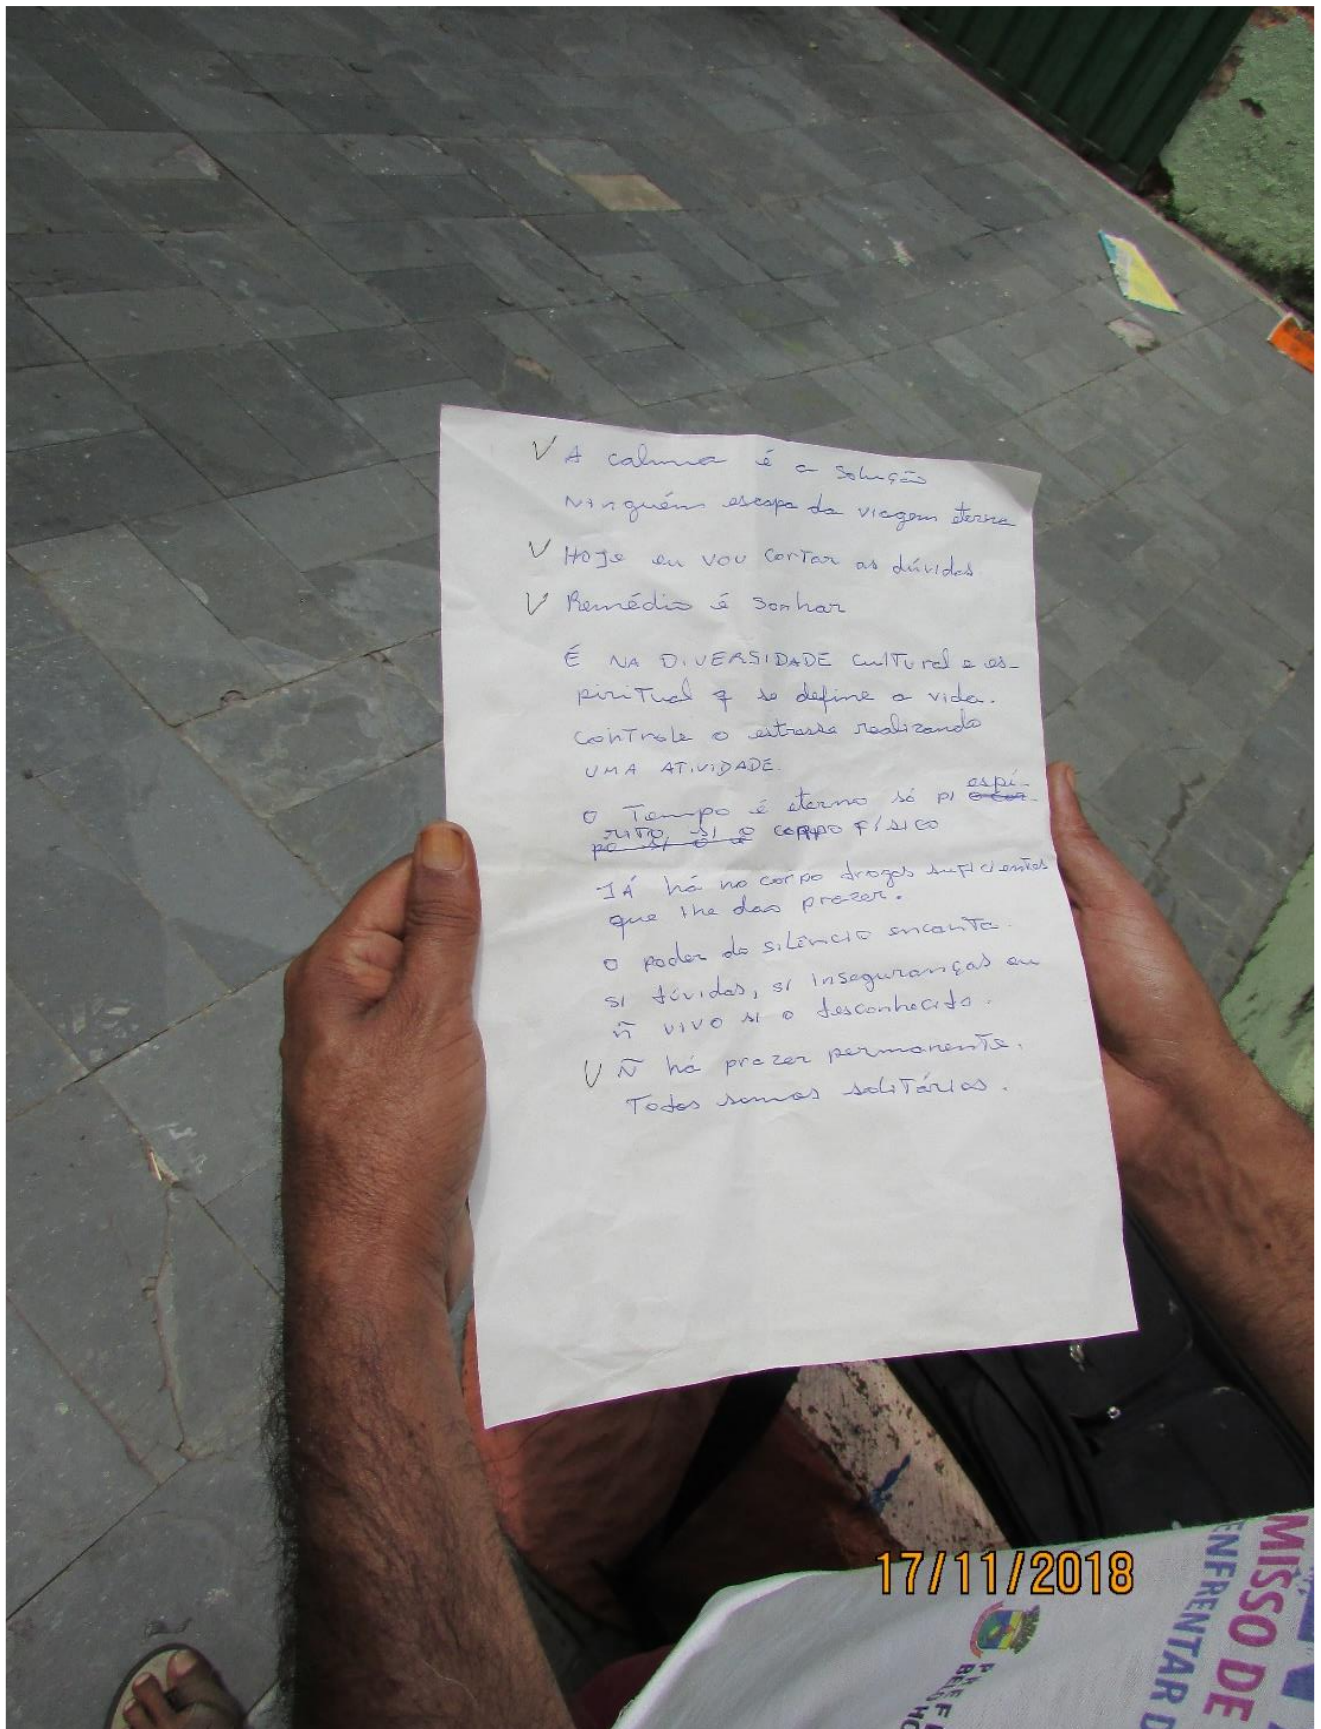 V A calma é a solução
Ninguém escapa da viagem eterna
V HOJE eu vou cortar as dúvidas
V Remédio é sonhar
É NA DIVERSIDADE culTural e es-
piriTual q se define a vida.
ConTrole o estresse realizando
UMA ATIVIDADE.
O Tempo é eterno só p/ espí-
RITO, s/ o corpo FÍSICO
JÁ há no corpo drogas suficientes
que lhe dão prazer.
O poder do silêncio encanta.
s/ dúvidas, s/ inseguranças eu
ñ vivo s/ o desconhecido.
V Ñ há prazer permanente.
Todos somos soliTários.
17/11/2018
MISSO DE
ENFRENTAR D
PREF
BELO HO